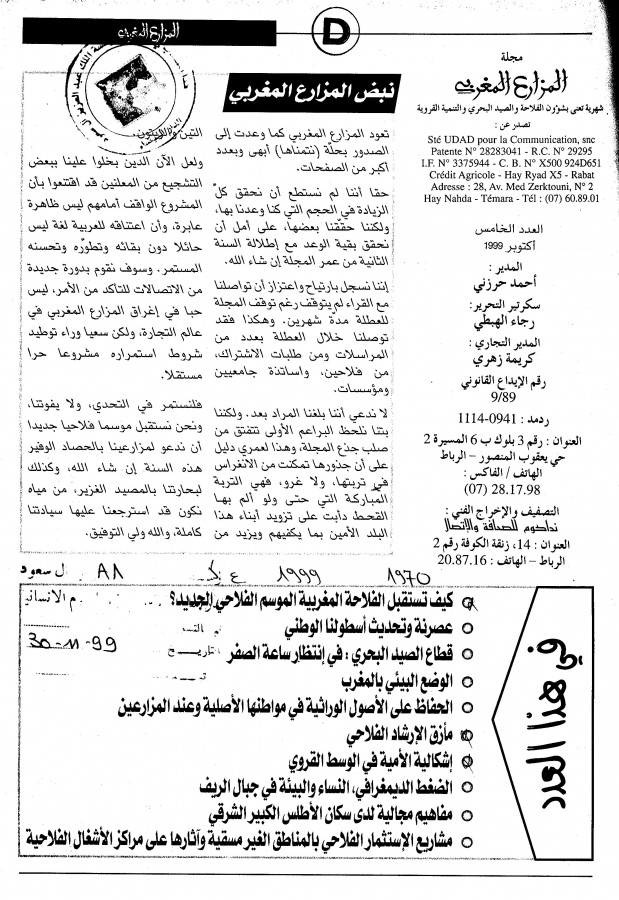 المزارع المغربي
D
مجلة
المزارع المغربي
شهرية تعنى بشؤون الفلاحة والصيد البحري والتنمية القروية
تصدر عن :
Sté UDAD pour la Communication, snc
Patente N° 28283041 - R.C. N° 29295
I.F. N° 3375944 - C. B. N° X500 924D651
Crédit Agricole - Hay Ryad X5 - Rabat
Adresse : 28, Av. Med Zerktouni, N° 2
Hay Nahda - Témara - Tél : (07) 60.89.01
العدد الخامس
أكتوبر 1999
المدير :
أحمد حرزني
سكرتير التحرير:
رجاء الهبطي
المدير التجاري :
كريمة زهري
رقم الإيداع القانوني
9/89
ردمد : 0941-1114
العنوان : رقم 3 بلوك ب 6 المسيرة 2
حي يعقوب المنصور - الرباط
الهاتف / الفاكس :
(07) 28.17.98
التصفيف والإخراج الفني :
نداكوم للصحافة والاتصال
العنوان : 14، زنقة الكوفة رقم 2
الرباط - الهاتف : 20.87.16
نبض المزارع المغربي
تعود المزارع المغربي كما وعدت إلى
الصدور بحلّة (نتمناها) أبهى وبعدد
أكبر من الصفحات.
حقا أننا لم نستطع أن نحقق كلّ
الزيادة في الحجم التي كنا وعدنا بها،
ولكننا حققنا بعضها، على أمل أن
نحقق بقية الوعد مع إطلالة السنة
الثانية من عمر المجلة إن شاء الله.
إننا نسجل بارتياح واعتزاز أن تواصلنا
مع القراء لم يتوقف رغم توقف المجلة
للعطلة مدة شهرين. وهكذا فقد
توصلنا خلال العطلة بعدد من
المراسلات ومن طلبات الاشتراك،
من فلاحين، واساتذة جامعيين
ومؤسسات.
لا ندعي أننا بلغنا المراد بعد. ولكننا
بتنا نلحظ البراعم الأولى تتفتق من
صلب جذع المجلة، وهذا لعمري دليل
على أن جذورها تمكنت من الانغراس
في تربتها، ولا غرو، فهي التربة
المباركة التي حتى ولو ألم بها
القحط دأبت على تزويد أبناء هذا
البلد الأمين بما يكفيهم ويزيد من
التين والزيتون.
ولعل الآن الذين بخلوا علينا ببعض
التشجيع من المعلنين قد اقتنعوا بأن
المشروع الواقف أمامهم ليس ظاهرة
عابرة، وأن اعتناقه للعربية لغة ليس
حائلا دون بقائه وتطوّره وتحسنه
المستمر. وسوف نقوم بدورة جديدة
من الاتصالات للتأكد من الأمر، ليس
حبا في إغراق المزارع المغربي في
عالم التجارة، ولكن سعيا وراء توطيد
شروط استمراره مشروعا حرا
مستقلا.
فلنستمر في التحدي، ولا يفوتنا،
ونحن نستقبل موسما فلاحيا جديدا
أن ندعو لمزارعينا بالحصاد الوفير
هذه السنة إن شاء الله، وكذلك
لبحارتنا بالمصيد الغزير، من مياه
نكون قد استرجعنا عليها سيادتنا
كاملة، والله ولي التوفيق.
1970 1999 ع ل سعود
م الانسانية
30-11-99
التاريخ
في هذا العدد
كيف تستقبل الفلاحة المغربية الموسم الفلاحي الجديد؟
عصرنة وتحديث أسطولنا الوطني
قطاع الصيد البحري : في إنتظار ساعة الصفر
الوضع البيئي بالمغرب
الحفاظ على الأصول الوراثية في مواطنها الأصلية وعند المزارعين
مأزق الإرشاد الفلاحي
إشكالية الأمية في الوسط القروي
الضغط الديمغرافي، النساء والبيئة في جبال الريف
مفاهيم مجالية لدى سكان الأطلس الكبير الشرقي
مشاريع الإستثمار الفلاحي بالمناطق الغير مسقية وآثارها على مراكز الأشغال الفلاحية